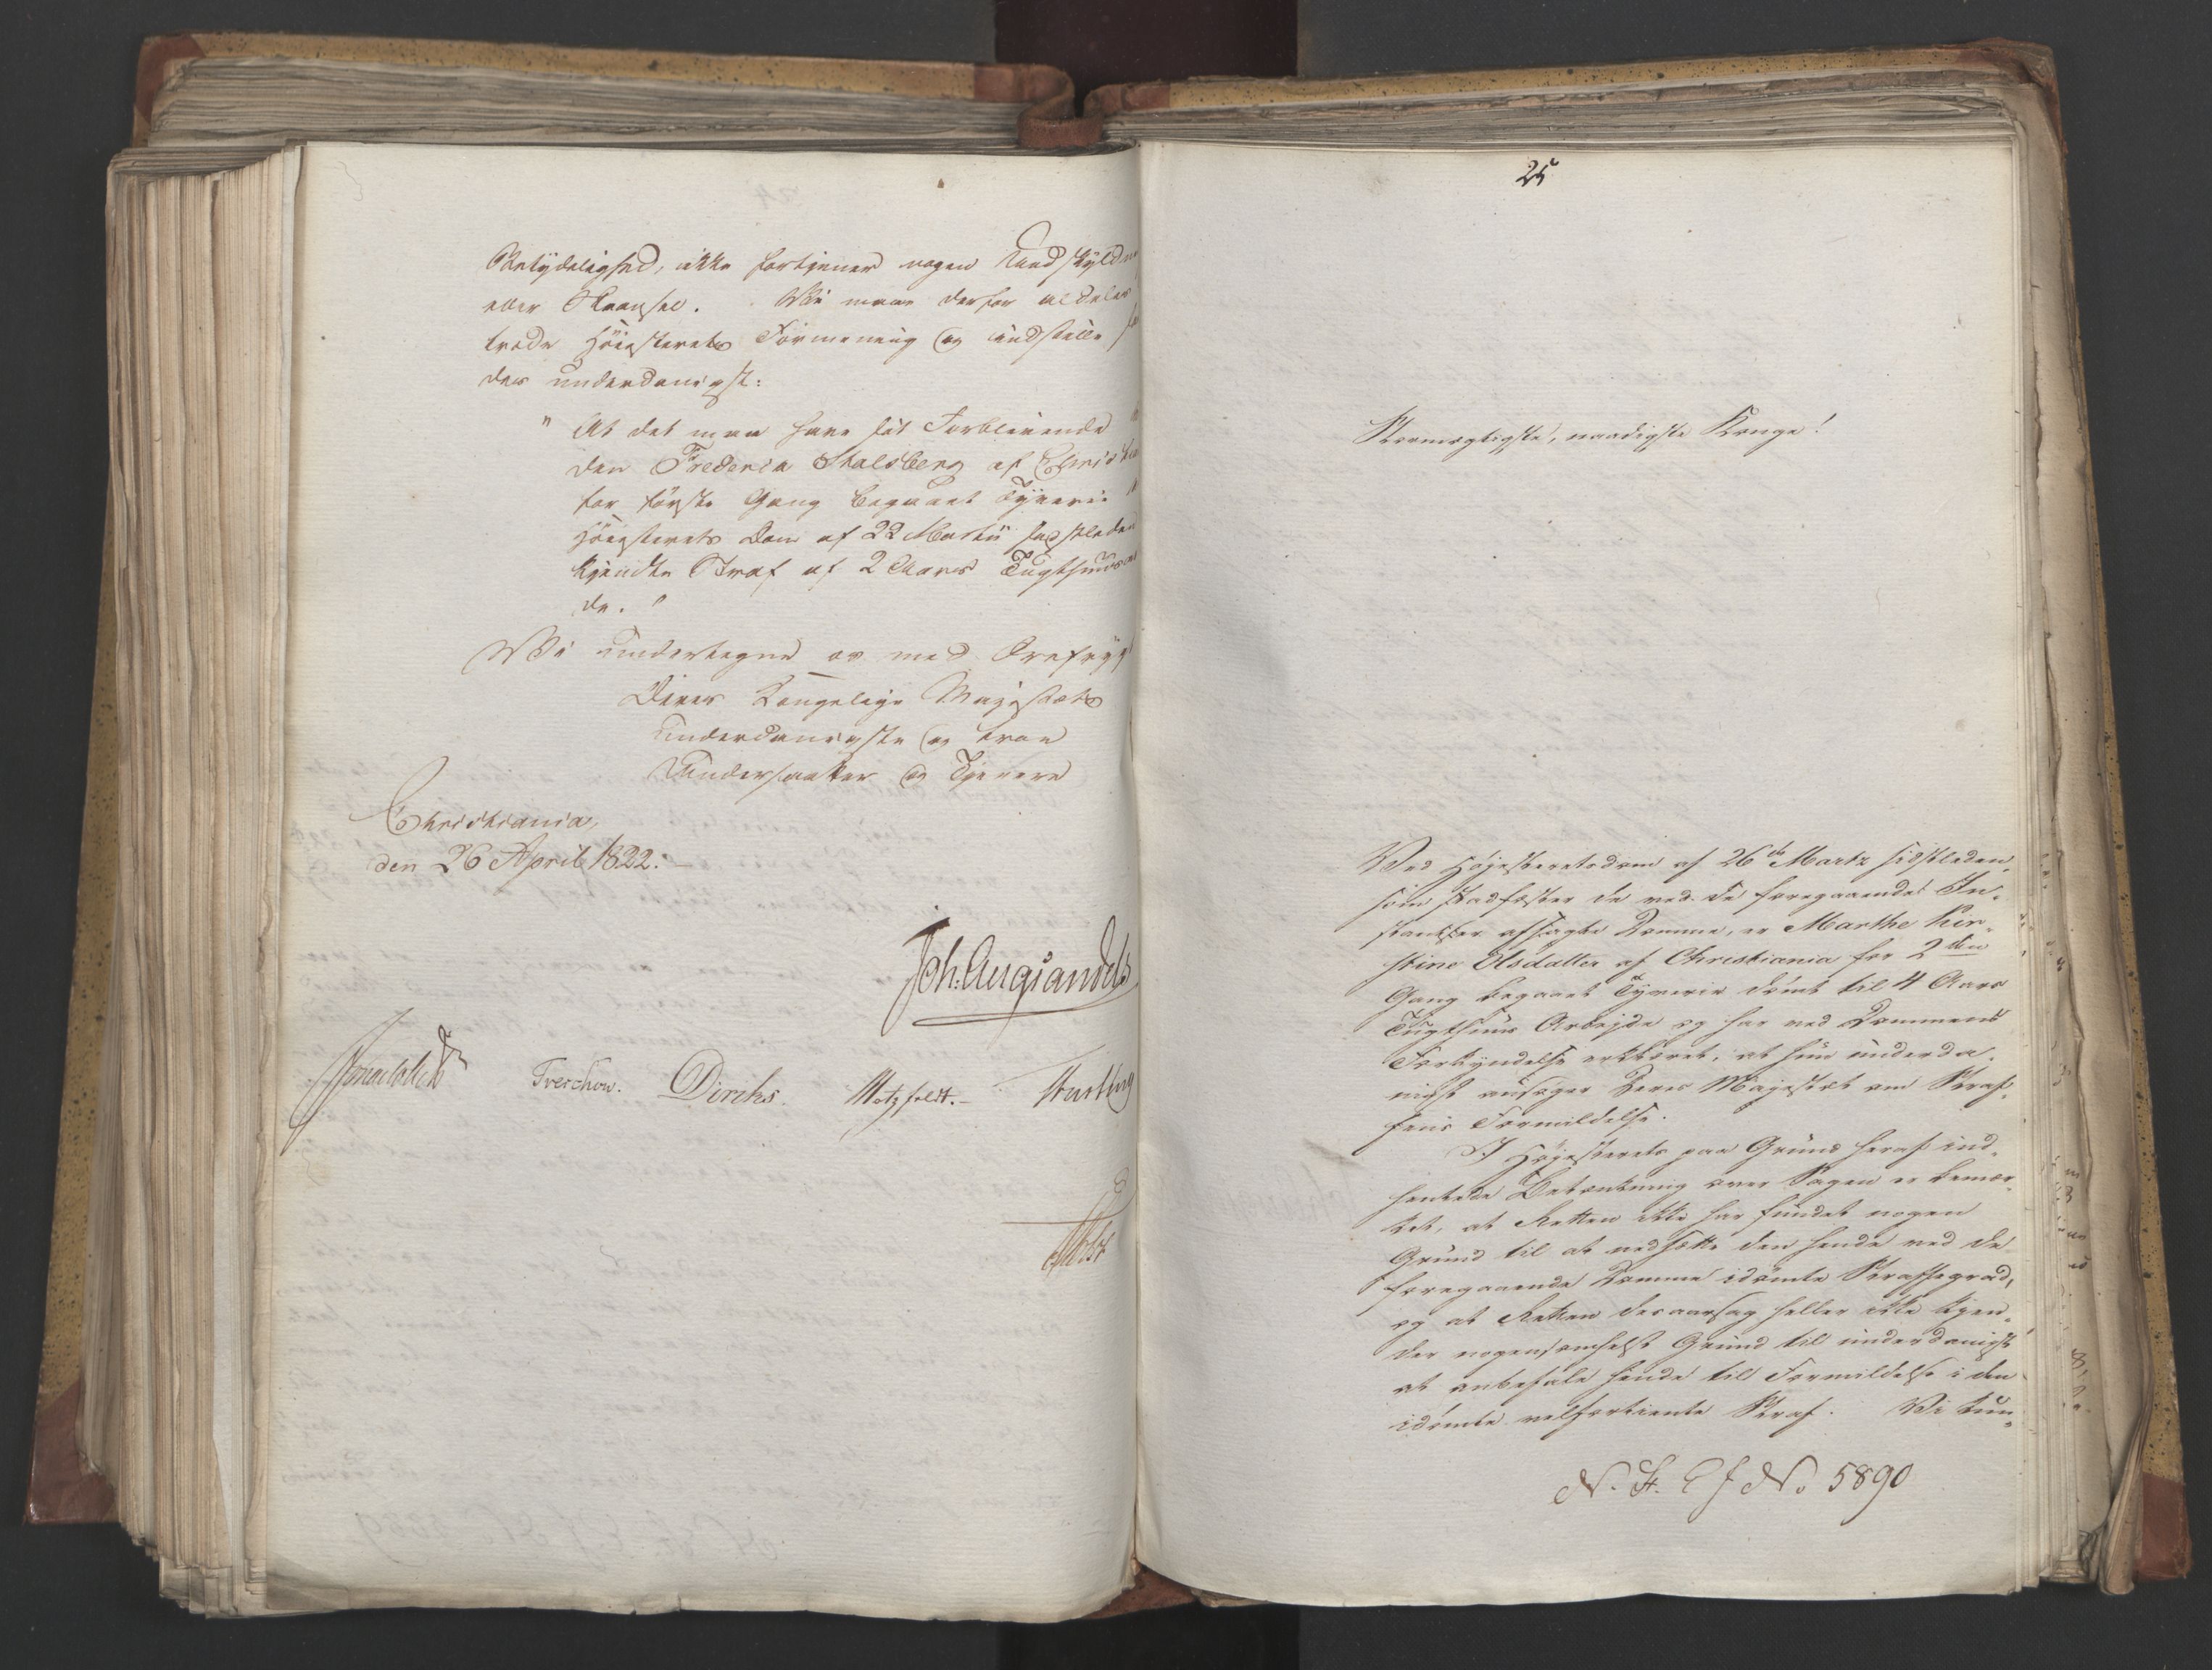 Betydelighed, ikke fortjener nogen Undskyldn
eller Skaansel. Vi maae derfor aldeles
træde Høiesterets Formening og indstille
des underdanigst:
" At det maa have sit Forblivende
den Frederica Stalsberg af Christia
for første Gang begaaet Tyverie
Høiesterets Dom af 22 Martii sidstleden
kjendte Straf af 2 Aars Tugthuusar
de. "
Vi undertegne os med Ærefrygt
Deres Kongelige Majestæts
underdanigste og troe
Undersaatter og Tjenere
Christiania,
den 26 April 1822.
Joh: Aug: Sandels
Treschow. Diriks. Motzfeldt. -
25
Stormægtigste, naadigste Konge!
Ved Højesteretsdom af 26de Martz sidstleden,
som stadfæster de ved de foregaaende In-
stantser afsagte Domme, er Marthe Kir-
stine Olsdatter af Christiania for 2den
Gang begaaet Tyverie dømt til 4 Aars
Tugthuus Arbejde og har ved Dommens
Forkyndelse erklæret, at hun underda-
nigst ansøger Deres Majestæt om Straf-
fens Formildelse.
I Højesterets paa Grund heraf ind-
hentede Betænkning over Sagen er bemær-
ket, at Retten ikke har fundet nogen
Grund til at nedsætte den hende ved de
foregaaende Domme idømte Straffegrad,
og at Retten desaarsag heller ikke kjen-
der nogensomhelst Grund til underdanigst
at anbefale hende til Formildelse i den
idømte velfortjente Straf. Vi kun-
N. St. E f N. 5890